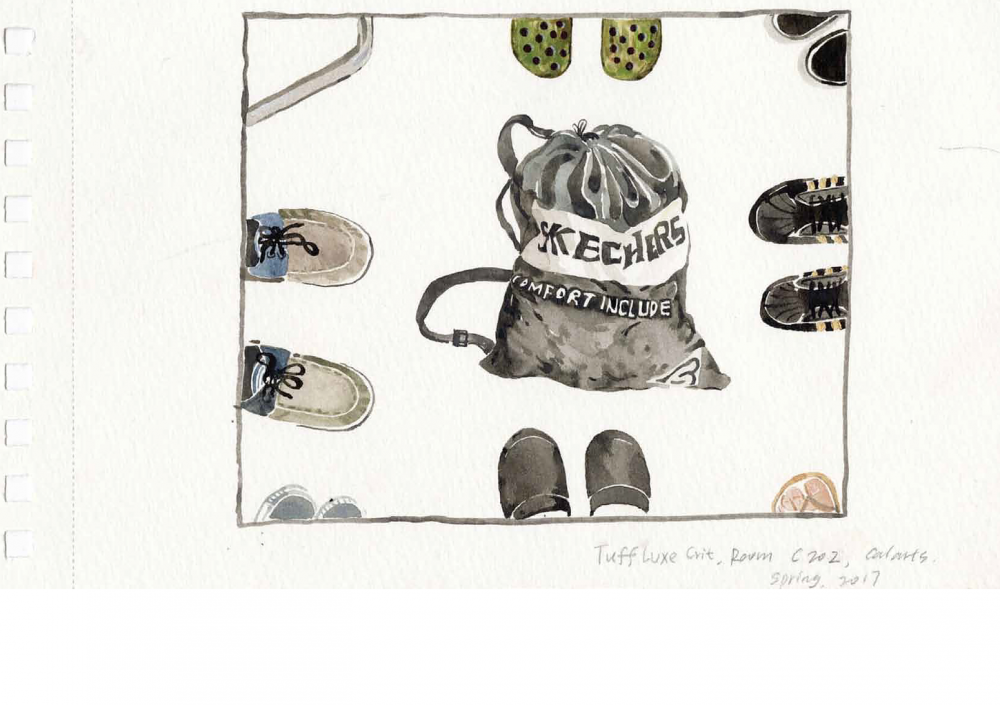 SKECHERS
COMFORT INCLUDE
Tuff Luxe Crit, Room C202, Calarts.
Spring, 2017